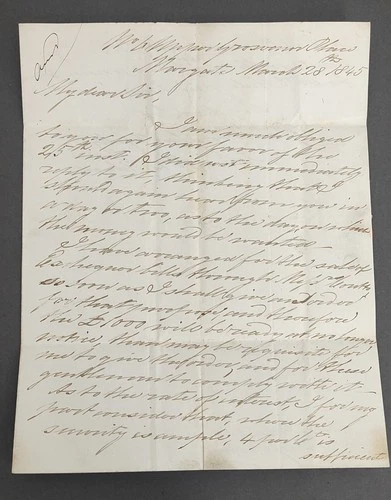 Ansd
No 6 Upper Grosvenor Place
Margate March 28th 1845
My dear Sir,
I am much obliged
to you for your favor of the
25th inst. I did not immediately
reply to it, thinking that I
should again hear from you in
a day or two, as to the day on when
the money would be wanted.
I have arranged for the sale of
Exchequer bills through Mr
so soon as I shall give an order
for that purpose, and therefore
the £1,000 will be ready at no longer
notice, than may be requisite for
me to give the order, and for these
gentlemen to comply with it.
As to the rate of interest, I for my
part consider that, where the
security is ample, 4 per Ct is
sufficient